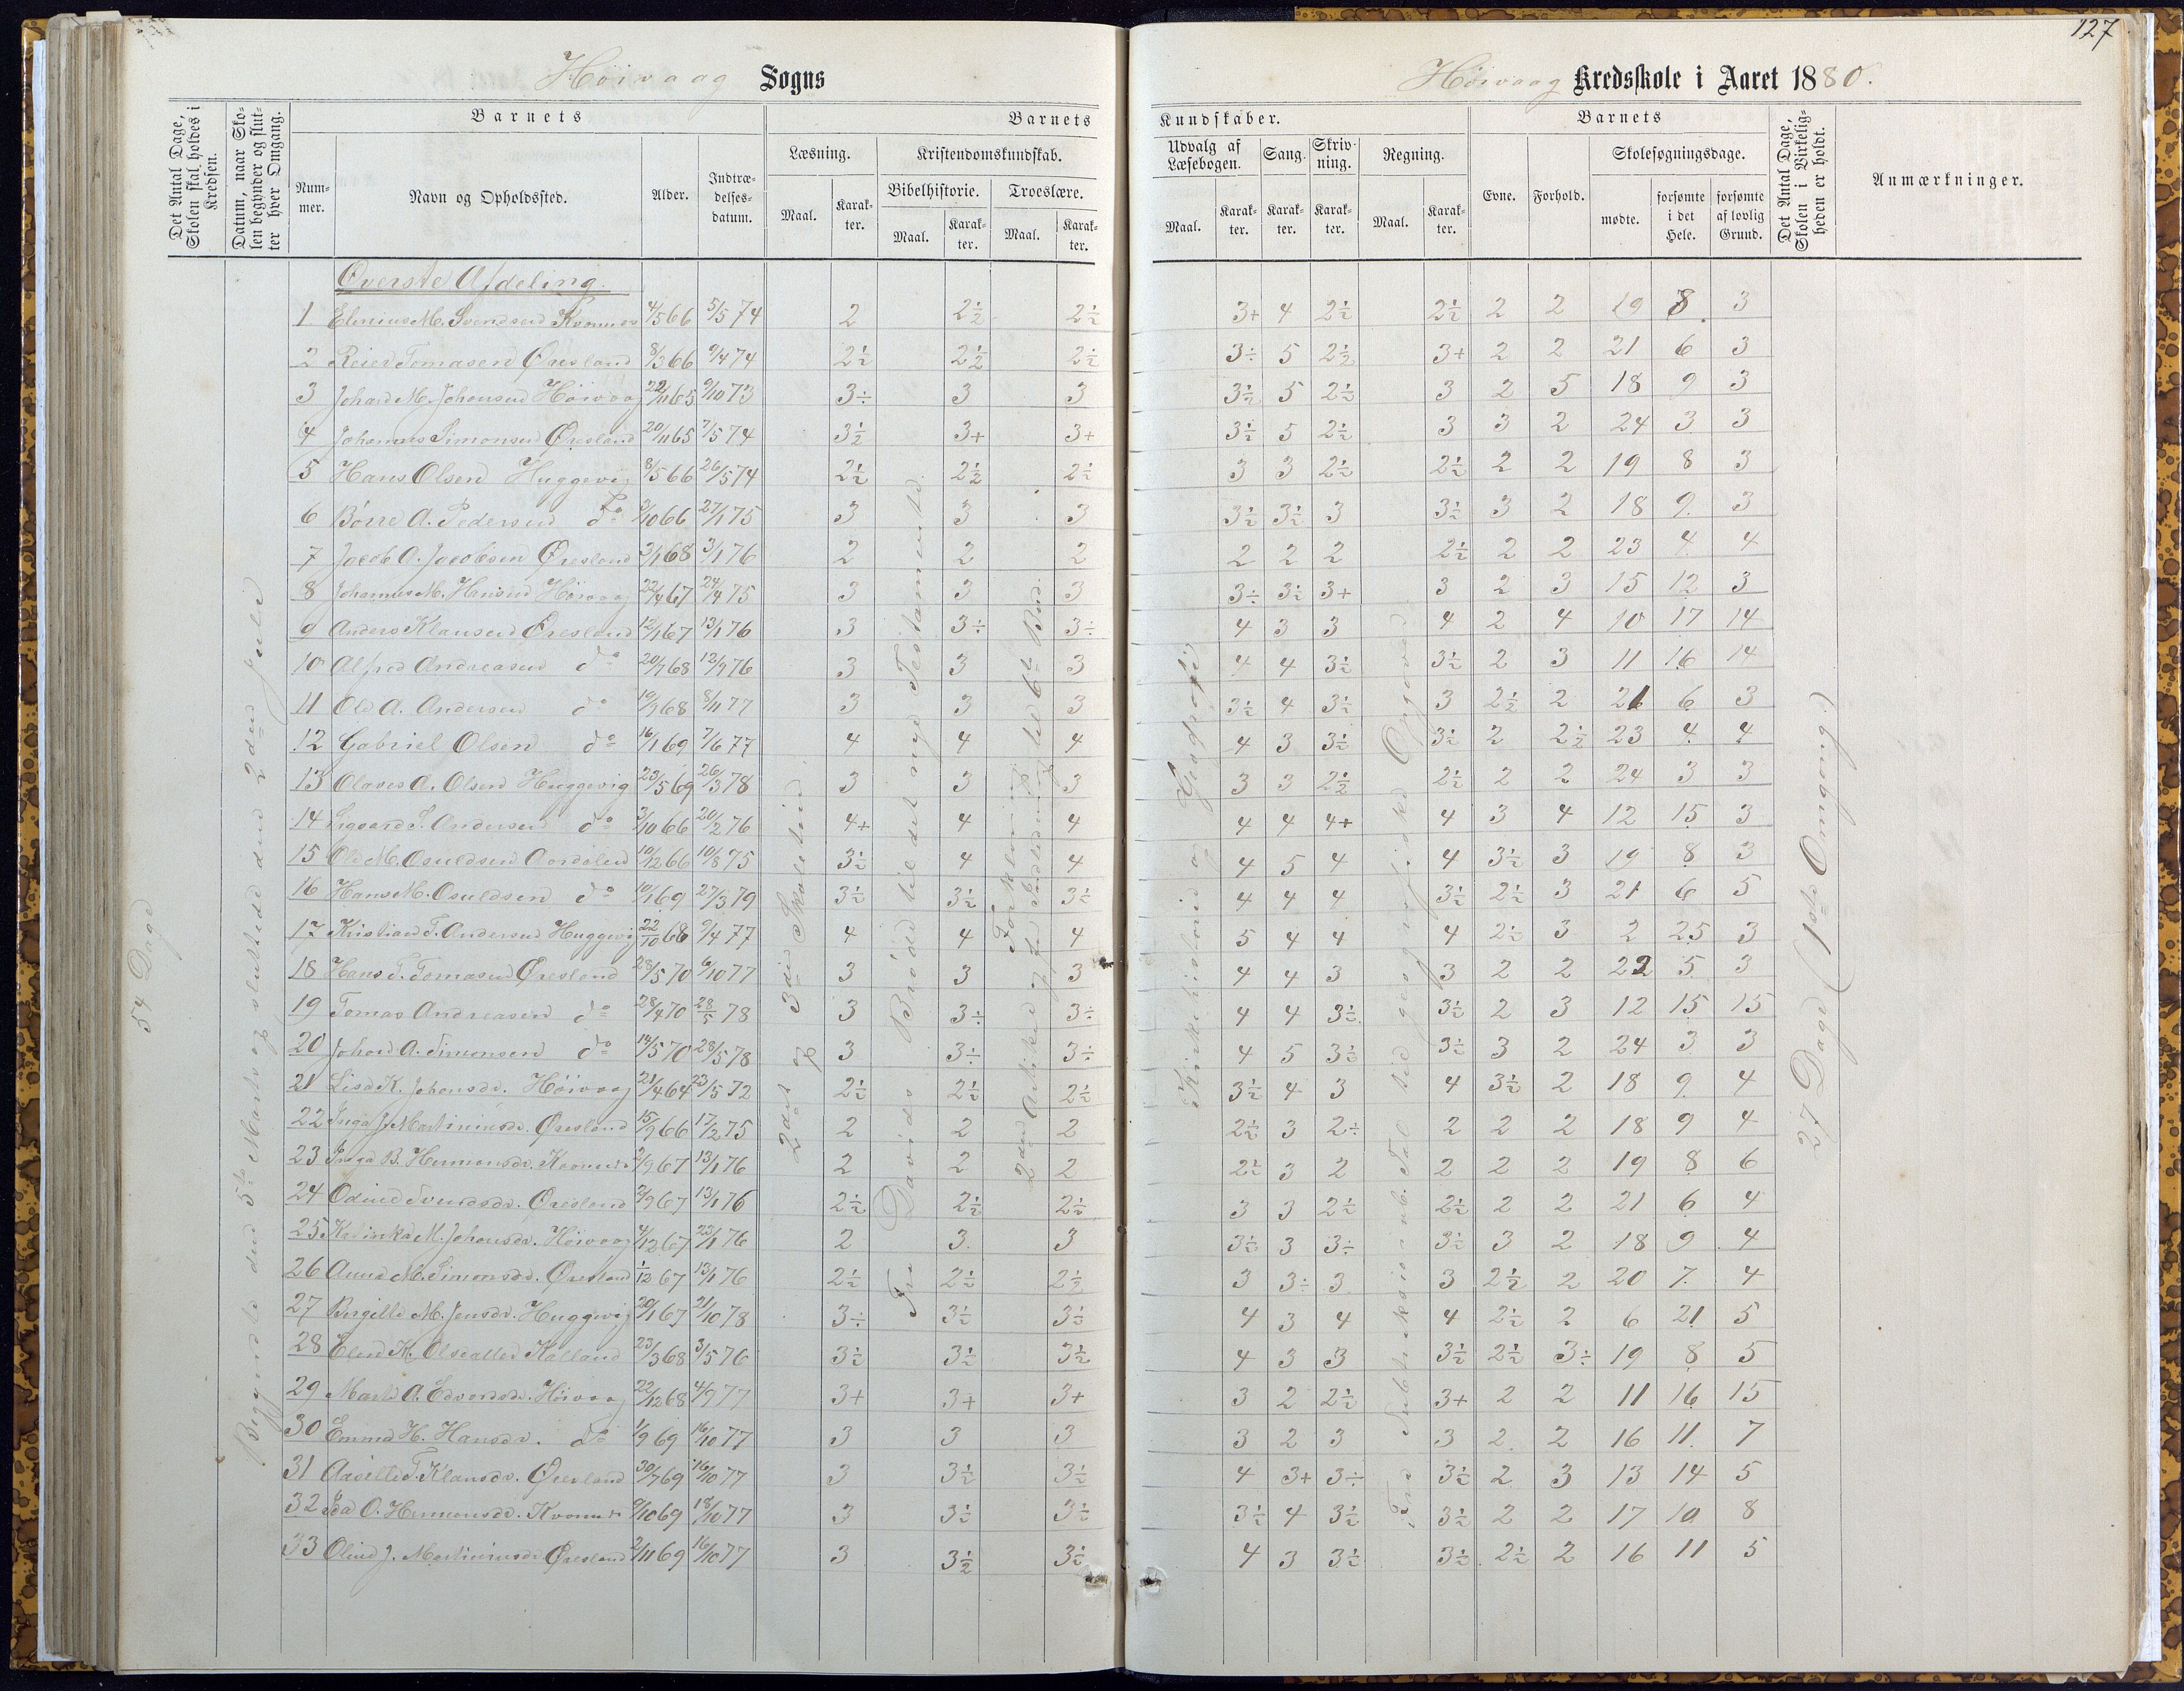 127
Høivaag Sogns
Høivaag Kredsskole i Aaret 1880.
Det Antal Dage, Skolen skal holdes i Kredsen.
Datum, naar Skolen begynder og slutter hver Omgang.
Barnets
Barnets
Kundskaber.
Barnets
Det Antal Dage, Skolen i Virkeligheden er holdt.
Anmærkninger.
Nummer.
Navn og Opholdssted.
Alder.
Indtrædelsesdatum.
Læsning.
Kristendomskundskab.
Bibelhistorie.
Troeslære.
Udvalg af Læsebogen.
Sang.
Skrivning.
Regning.
Evne.
Forhold.
Skolesøgningsdage.
Maal.
Karakter.
Maal.
Karakter.
Maal.
Karakter.
Maal.
Karakter.
Karakter.
Karakter.
Maal.
Karakter.
mødte.
forsømte i det Hele.
forsømte af lovlig Grund.
Øverste Afdeling.
1 Elenius M. Svendsen 4/5 66 5/5 74 2 2½ 2½ 3+ 4 2½ 2½ 2 2 19 8 3
2 Reier Tomasen Øresland 8/3 66 9/4 74 2½ 2½ 2½ 3÷ 5 2½ 3+ 2 2 21 6 3
3 Johan M. Johansen Høivaag 22/11 65 9/10 73 3÷ 3 3 3½ 5 2½ 3 2 5 18 9 3
4 Johannes Simonsen Øresland 20/11 65 7/5 74 3½ 3+ 3+ 3½ 5 2½ 3 3 2 24 3 3
5 Hans Olsen Huggevig 8/5 66 26/5 74 2½ 2½ 2½ 3 3 2½ 2½ 2 2 19 8 3
6 Børre A. Pedersen do 3/10 66 27/1 75 3 3 3 3½ 3½ 3 3½ 3 2 18 9 3
7 Jacob A. Jacobsen Øresland 3/1 68 3/1 76 2 2 2 2 2 2 2½ 2 2 23 4 4
8 Johannes M. Hansen Høivaag 22/4 67 24/4 75 3 3 3 3÷ 3½ 3+ 3 2 3 15 12 3
9 Anders Klausen Øresland 12/1 67 13/1 76 3 3÷ 3÷ 4 3 3 4 2 4 10 17 14
10 Alfred Andreasen do 20/7 68 12/9 76 3 3 3 4 4 3½ 3½ 2 3 11 16 14
11 Ole A. Andersen do 19/9 68 8/11 77 3 3 3 3½ 4 3½ 3 2½ 2 21 6 3
12 Gabriel Olsen do 16/1 69 7/6 77 4 4 4 4 3 3½ 3½ 2 2½ 23 4 4
13 Olaves A. Olsen Huggevig 23/5 69 26/3 78 3 3 3 3 3 2½ 2½ 2 2 24 3 3
14 Sigvard S. Andersen do 3/10 66 20/2 76 4+ 4 4 4 4 4+ 4 3 4 12 15 3
15 Ole M. Osuldsen 10/12 66 10/8 75 3½ 4 4 4 5 4 4 3½ 3 19 8 3
16 Hans M. Osuldsen do 10/1 69 27/3 79 3½ 3½ 3½ 4 4 4 3½ 2½ 3 21 6 5
17 Kristian T. Andersen Huggevig 22/10 68 9/4 77 4 4 4 5 4 4 4 2½ 3 2 25 3
18 Hans T. Tomasen Øresland 28/5 70 6/10 77 3 3 3 4 4 3 3 2 2 22 5 3
19 Tomas Andreasen do 28/4 70 28/5 78 3 3÷ 3÷ 4 4 3½ 3½ 2 3 12 15 15
20 Johan A. Simonsen do 14/5 70 28/5 78 3 3÷ 3÷ 4 5 3½ 3½ 3 2 24 3 3
21 Lise K. Johansdr. Høivaag 21/4 64 23/5 72 2½ 2½ 2½ 3½ 4 3 4 3½ 2 18 9 4
22 Inga J. Martiniusdr. Øresland 15/9 66 17/2 75 2 2 2 2½ 3 2÷ 2 2 2 18 9 4
23 B. Hermansdr. 2/9 67 13/1 76 2 2 2 2½ 3 2 2 2 2 19 8 6
24 Odine Svendsdr. Øresland 2/9 67 13/1 76 2½ 2½ 2½ 3 3 2½ 2½ 2 2 21 6 4
25 Katinka M. Johansdr. Høivaag 4/12 67 23/1 76 2 3 3 3½ 3 3÷ 3½ 3 2 18 9 4
26 Anne M. Simonsdr. Øresland 1/12 67 13/1 76 2½ 2½ 2½ 3 3÷ 3 3 2½ 2 20 7 4
27 Birgitte M. Jensdr. Huggevig 20/1 67 21/10 78 3÷ 3½ 3½ 4 3 4 4 2½ 2 6 21 5
28 Elen K. Olsdatter Kalland 23/3 68 3/5 76 3½ 3½ 3½ 4 3 3 3½ 2½ 3÷ 19 8 5
29 A. Edvardsdr. Høivaag 22/12 68 4/9 77 3+ 3+ 3+ 3 2 2½ 3+ 2 2 11 16 15
30 Emma H. Hansdr. do 1/9 69 16/10 77 3 3 3 3 2 3 3 2 2 16 11 7
31 T. Klausdr. Øresland 30/7 69 16/10 77 3 3½ 3½ 4 3+ 3÷ 3½ 2 3 13 14 5
32 Ida O. Hermansdr. 9/10 69 18/10 77 3 3½ 3½ 3½ 4 3½ 3½ 2 2 17 10 8
33 Oline J. Martiniusdr. Øresland 2/11 69 16/10 77 3 3½ 3½ 4 3 3½ 3½ 2½ 2 16 11 5
54 Dage
Begyndte den 5te Marts og sluttede den 2den Julie
2det og 3die Skoletrin
Fra Davids Brøde til det nye Testamente
Forklaring 2den Artikel og fra Indledning til 6te Bud
Kirkehistorie og Geografi
Fra Subtraksion ub. Tal til geografiske Opgaver
27 Dage (1ste Omgang.)